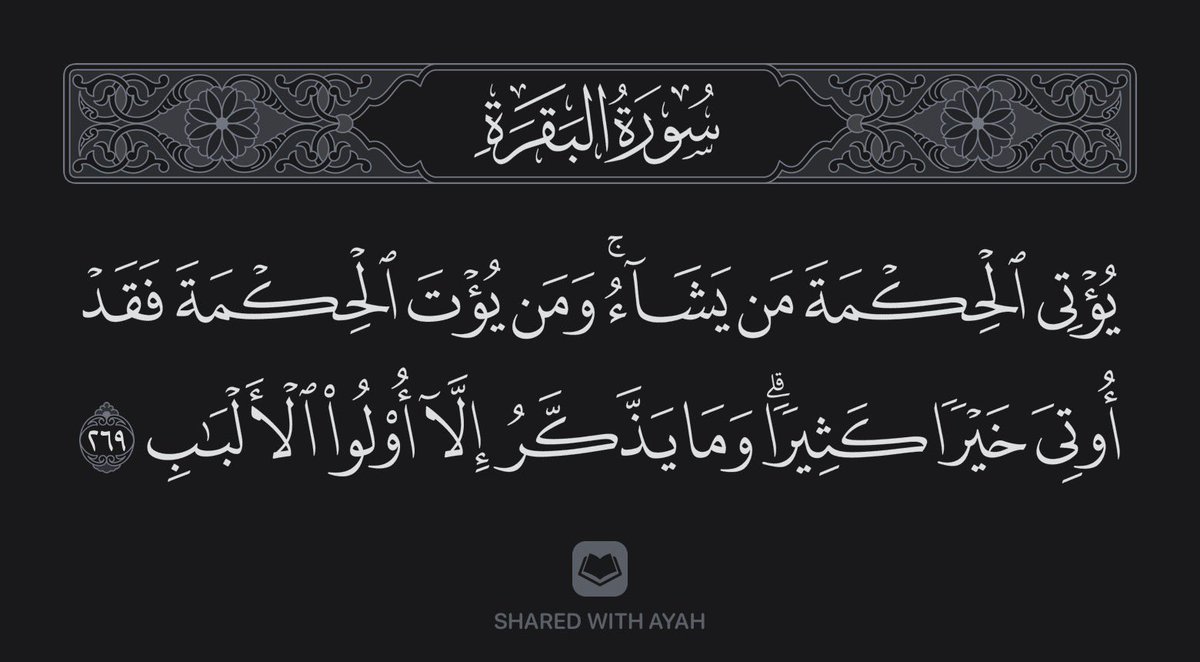 سُورَةُ البَقَرَةِ
يُؤۡتِي ٱلۡحِكۡمَةَ مَن يَشَآءُۚ وَمَن يُؤۡتَ ٱلۡحِكۡمَةَ فَقَدۡ
أُوتِيَ خَيۡرٗا كَثِيرٗاۗ وَمَا يَذَّكَّرُ إِلَّآ أُوْلُواْ ٱلۡأَلۡبَٰبِ ٢٦٩
SHARED WITH AYAH